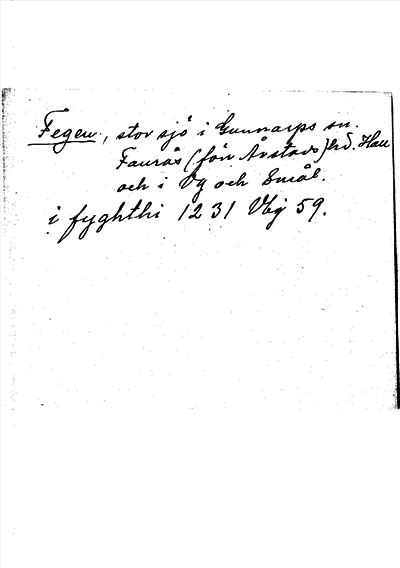 Fegen, stor sjö i Gunnarps sn.
Faurås (förr Årstads) hd. Hall
och i Vg och Smål.
i fyghthi 1231 Vbj 59.